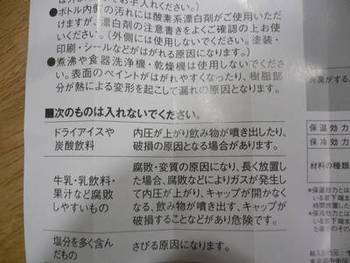 はお手入れください。)
●ボトル内側の汚れには酸素系漂白剤がご使用いただ
けますが、漂白剤の注意書きをよくご確認の上お使
(外側には使用しないでください。塗装・
印刷・シールなどがはがれる原因になります。)
●煮沸や食器洗浄機・乾燥機は使用しないでください。
表面のペイントがはがれやすくなったり、樹脂部
分が熱による変形を起こして漏れの原因となります。
■次のものは入れないでください。
ドライアイスや
炭酸飲料
内圧が上がり飲み物が噴き出したり、
破損の原因となる場合があります。
牛乳・乳飲料・
果汁など腐敗
しやすいもの
腐敗・変質の原因になり、長く放置し
た場合、腐敗などによりガスが発生し
て内圧が上がり、キャップが開かなく
なる、飲み物が噴き出す、キャップが
破損することなどがあり危険です。
塩分を多く含ん
だもの
さびる原因になります。
保温効力
保冷効力
材料の種類